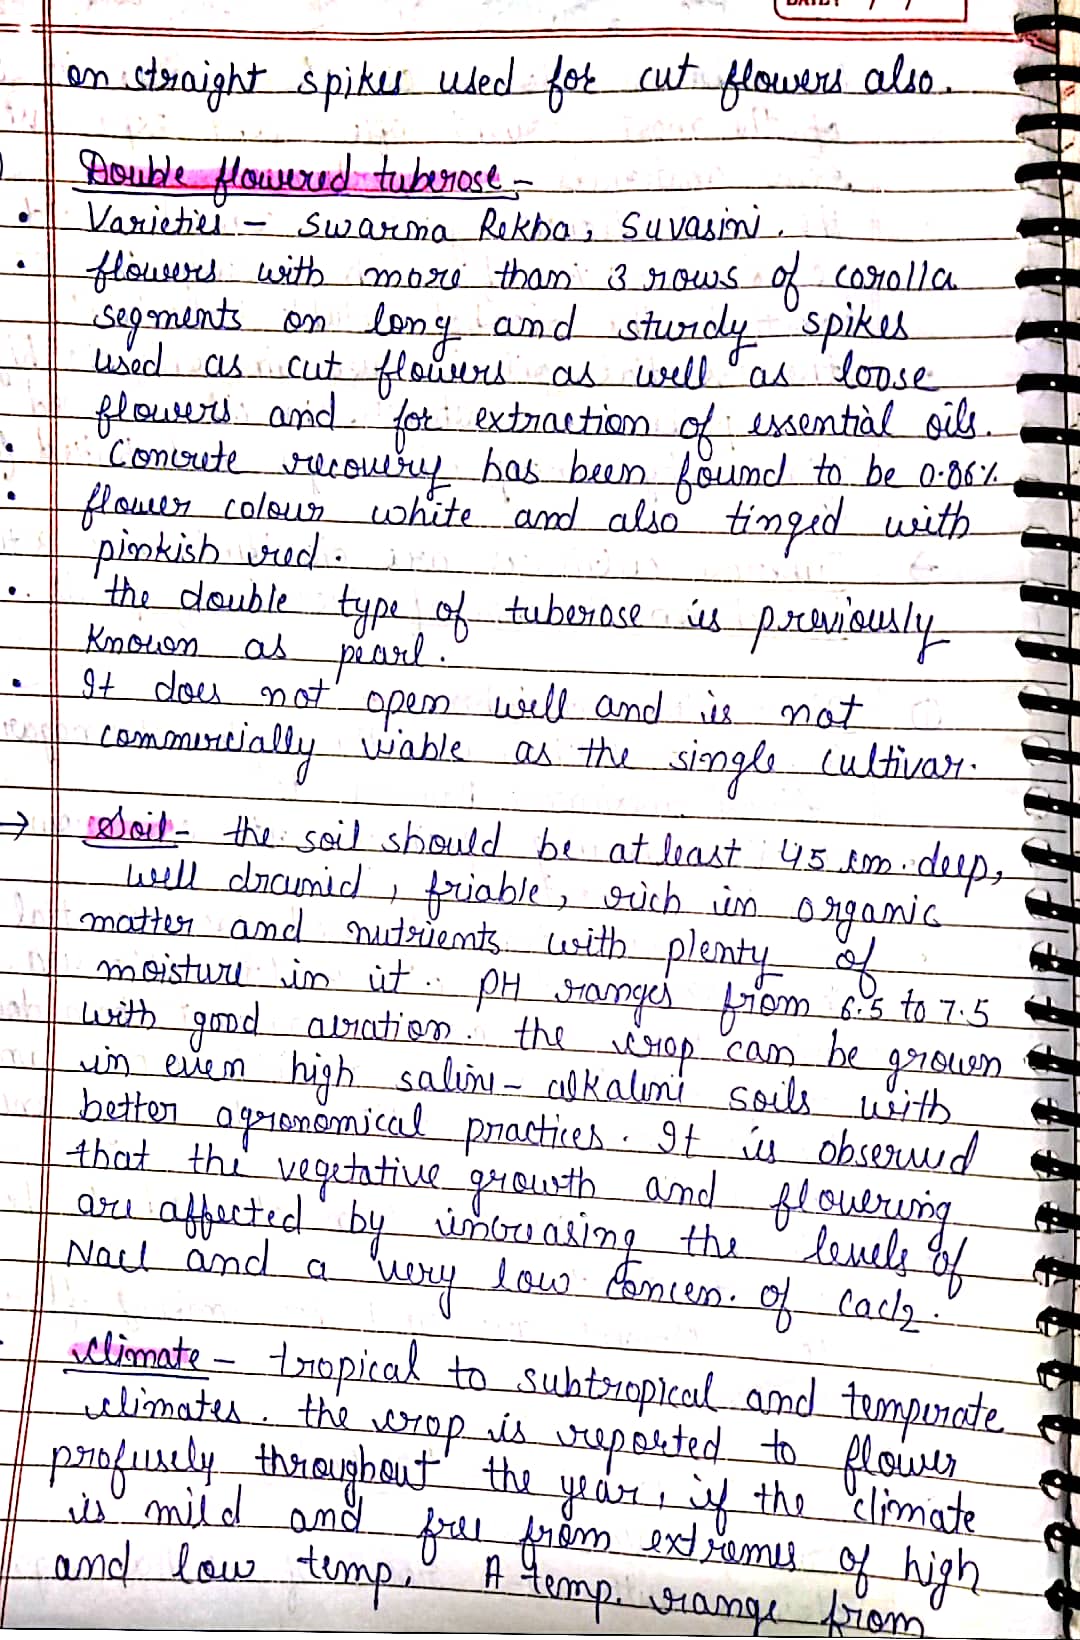 on straight spikes used for cut flowers also.
Double flowered tuberose -
• Varieties - Swarna Rekha, Suvasini.
• flowers with more than 3 rows of corolla
segments on long and sturdy spikes
used as cut flowers as well as loose
flowers and for extraction of essential oils.
• Concrete recovery has been found to be 0.06%.
• flower colour white and also tinged with
pinkish red.
• the double type of tuberose is previously
Known as pearl.
• It does not open well and is not
commercially viable as the single cultivar.
→ Soil - the soil should be at least 45 cm. deep,
well drained, friable, rich in organic
matter and nutrients with plenty of
moisture in it. PH ranges from 6.5 to 7.5
with good aeration. the crop can be grown
in even high saline-alkaline soils with
better agronomical practices. It is observed
that the vegetative growth and flowering
are affected by increasing the levels of
Nacl and a very low concen. of cacl2.
Climate - tropical to subtropical and temperate
climates. the crop is reported to flower
profusely throughout the year, if the climate
is mild and free from extremes of high
and low temp. A temp. range from